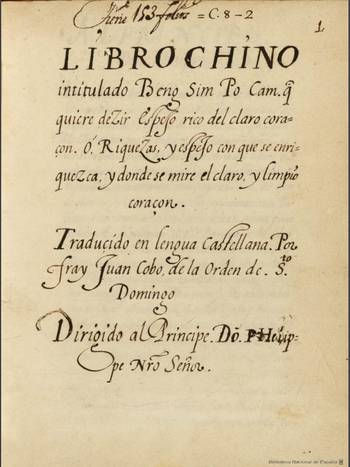 Tiene 153 folios = C. 8 - 2
1
LIBRO CHINO
intitulado Beng Sim Po Cam. q̃
quiere deZir Espejo rico del claro cora=
çon. O. RiqueZas, y espejo con que se enri=
queZca, y donde se mire el claro, y limpio
coraçon.
Traducido en lengua Castellana. Por
fray Juan Cobo, de la Orden de. S.to
Domingo
Dirigido al Principe. Dō. PHelip=
pe Nr̃o Señor.
Biblioteca Nacional de España